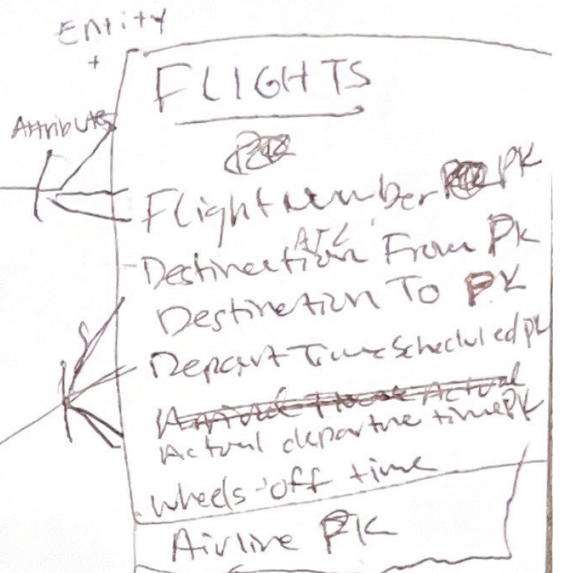 Entity
+
Attributes
FLIGHTS
Flight Number PK
Destination From PK
Destination To PK
Depart Time Scheduled PK
Actual departure time PK
wheels-off time
Airline PK